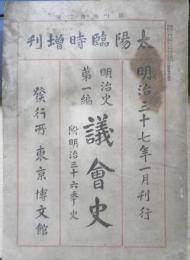 太陽臨時増刊
明治三十七年一月刊行
明治史
第一編
議會史
附明治三十六年史
發行所 東京 博文館